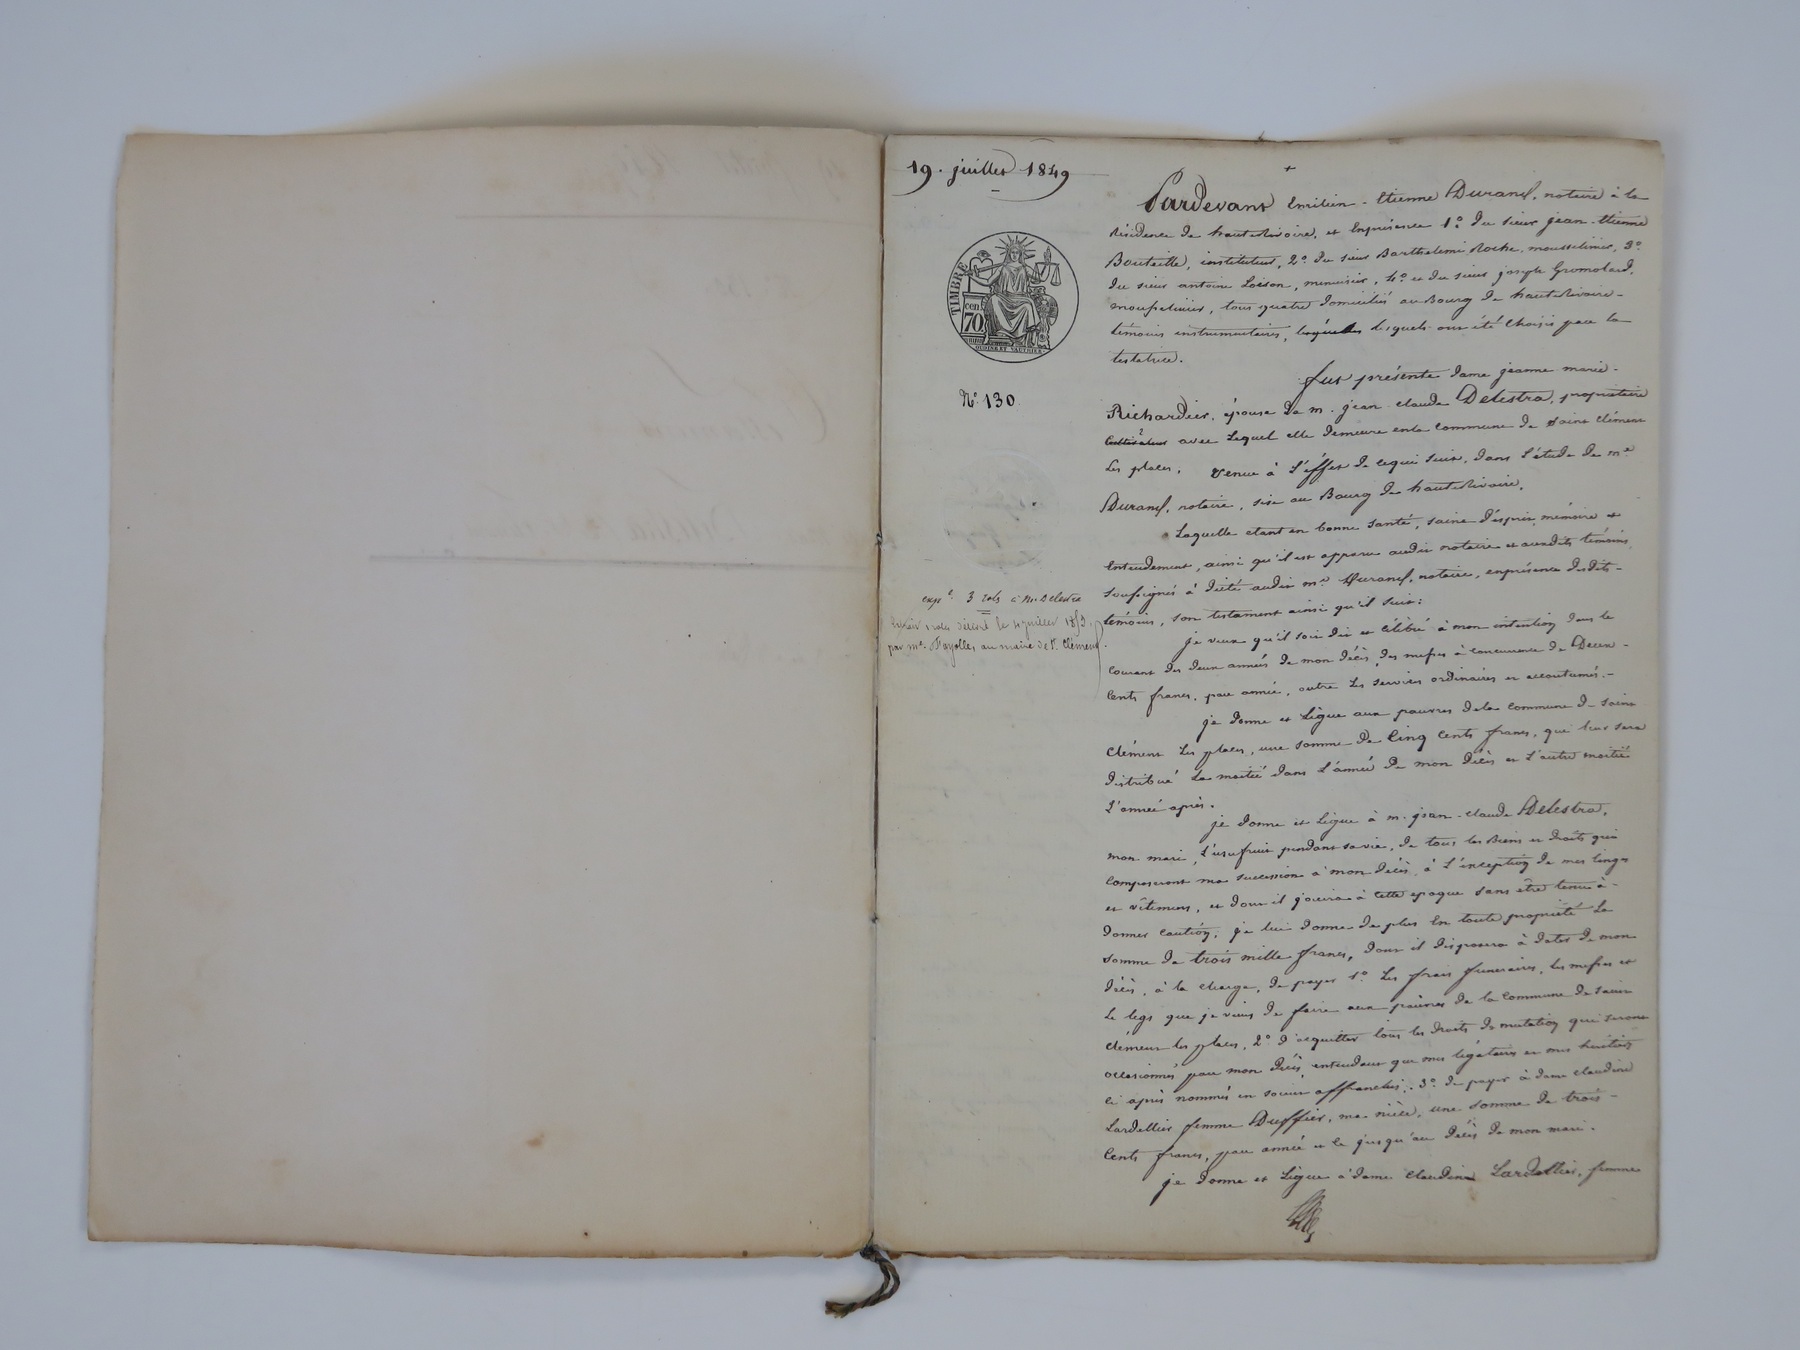 19. juillet 1849
TIMBRE
cen.
70
OUDINE ET GAUTHIER
N.o 130
exp.e 3 rols à m. Delestra
délivré le 4 juillet 1853
par m.e Fayolles au maire de St. Clément.
Pardevant Emilien-Etienne Durand, notaire à la
Résidence de hauterivoire, et Enprésence 1.o du sieur jean-Etienne
Bouteille, instituteur, 2.o du sieur Barthelemi Roche, mousselinier, 3.o
du sieur antoine Loison, menuisier, 4.o et du sieur joseph Gromolard,
mousselinier, tous quatre domiciliés au Bourg de hauterivoire-
témoins instrumentaires, lesquels ont été Choisis par la
testatrice.
fut présente dame jeanne marie-
Richardier, épouse de m. jean-claude Delestra, propriétaire
Cultivateur avec Lequel elle demeure enla commune de saint Clément
Les places. Venue à L'éffet de cequi suit, dans L'étude de m.e
Durand, notaire, sise au Bourg de hauterivoire.
Laquelle étant en bonne santé, saine d'esprit, mémoire et
Entendement, ainsi qu'il est apparu audit notaire et auxdits témoins,
soussignés à dicté audit m.e Durand, notaire, enprésence desdits-
témoins, son testament ainsi qu'il suit:
je veux qu'il soit dit et célébré à mon intention dans le
courant des deux années de mon décès, des messes à concurrence de Deux-
Cents francs, par année, outre Les services ordinaires et accoutumés.-
je donne et Lègue aux pauvres dela commune de saint
Clément Les places, une somme de Cinq Cents francs, qui leur sera
distribué La moitié dans L'année de mon décès et L'autre moitié
L'année après.
je donne et Lègue à m. jean-claude Delestra,
mon mari, L'usufruit pendant savie, de tous les Biens et droits qui
Composeront ma succession à mon décès, à L'exception de mes linges
et vêtemens, et dont il jouira à cette epoque sans être tenu à-
donner caution; je lui donne de plus En toute propriété La
somme de trois mille francs, dont il disposera à dater de mon
décès, à la charge, de payer 1.o Les frais funéraires, Les messes et
Le legs que je viens de faire aux pauvres de la commune de saint
clément les places, 2.o d'acquitter tous les droits de mutation qui seront
occasionnés par mon décès, entendant que mes légataires et mes héritiers
ci après nommés en soient affranchis, 3.o de payer à dame claudine
Lardellier femme Duffier, ma nièce, une somme de trois-
Cents francs, par année et ce jusqu'au décès de mon mari.
je donne et Lègue à dame Claudine Lardellier, femme